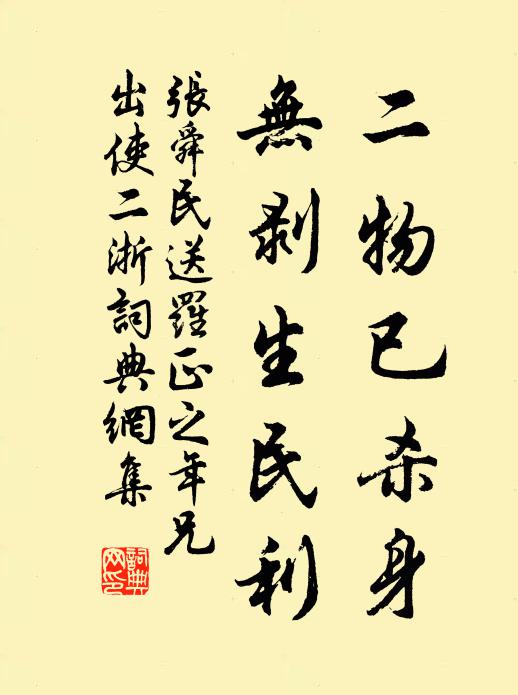 二物已杀身
無剥生民利
張舜民送羅正之年兄
出使二浙詞典網集
詞典网印